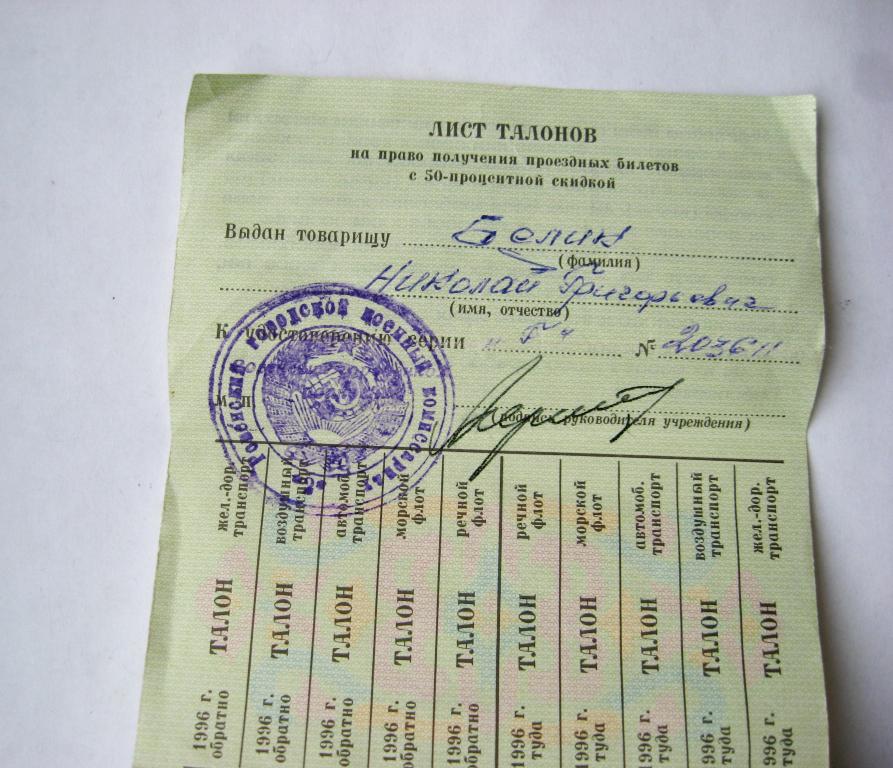 ЛИСТ ТАЛОНОВ
на право получения проездных билетов
с 50-процентной скидкой
Выдан товарищу Белик
(фамилия)
Николай Григорьевич
(имя, отчество)
К удостоверению серии "Г" № 203611
м п
(подпись руководителя учреждения)
городской военный комиссариат
жел.-дор. транспорт ТАЛОН 1996 г. обратно
воздушный транспорт ТАЛОН 1996 г. обратно
автомоб. транспорт ТАЛОН 1996 г. обратно
морской флот ТАЛОН 1996 г. обратно
речной флот ТАЛОН 1996 г. обратно
речной флот ТАЛОН 1996 г. туда
морской флот ТАЛОН 1996 г. туда
автомоб. транспорт ТАЛОН 1996 г. туда
воздушный транспорт ТАЛОН 996 г. туда
жел.-дор. транспорт ТАЛОН 996 г. туда